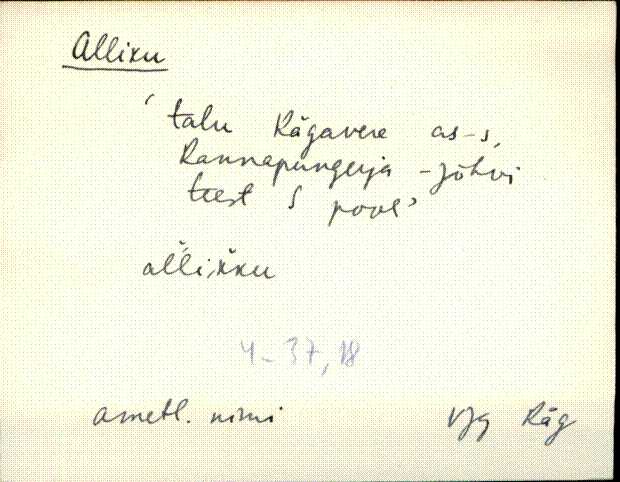 Alliku
‘talu Rägavere as-s,
Rannapungerja - Jõhvi
teest S pool’
al̆li·k̆ku
4-37,18
ametl. nimi Vjg Räg